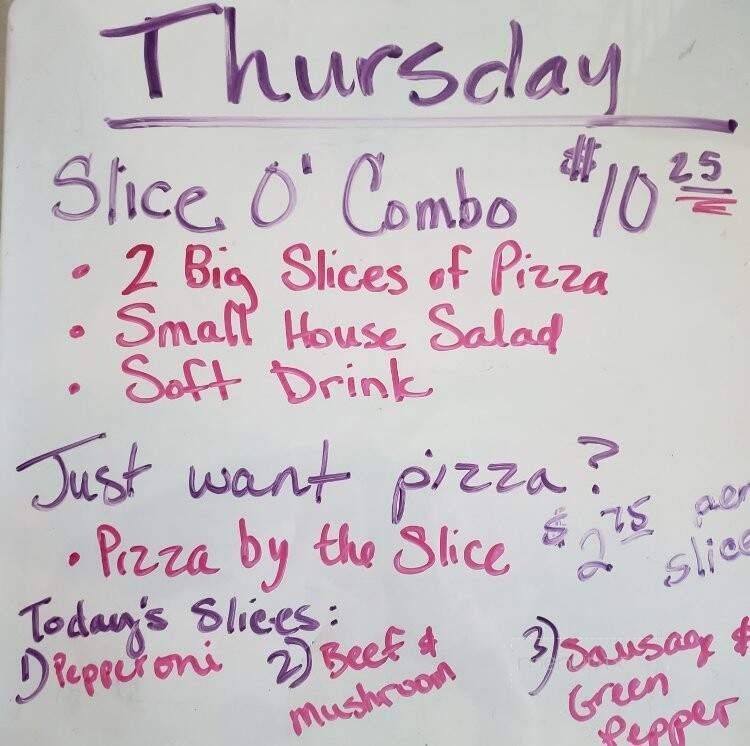 Thursday
Slice O' Combo $10 25
• 2 Big Slices of Pizza
• Small House Salad
• Soft Drink
Just want pizza?
• Pizza by the Slice $2 75 per slice
Today's Slices:
1) Pepperoni
2) Beef &
mushroom
3) Sausage &
Green
Pepper